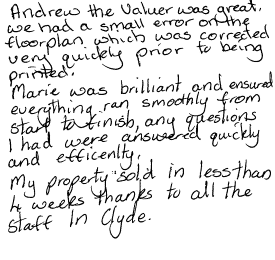 Andrew the Valuer was great.
we had a small error on the
floorplan which was corrected
very quickly prior to being
printed.
Marie was brilliant and ensured
everything ran smoothly from
start to finish, any questions
I had were answered quickly
and efficenlty.
My property sold in less than
4 weeks thanks to all the
staff In Clyde.